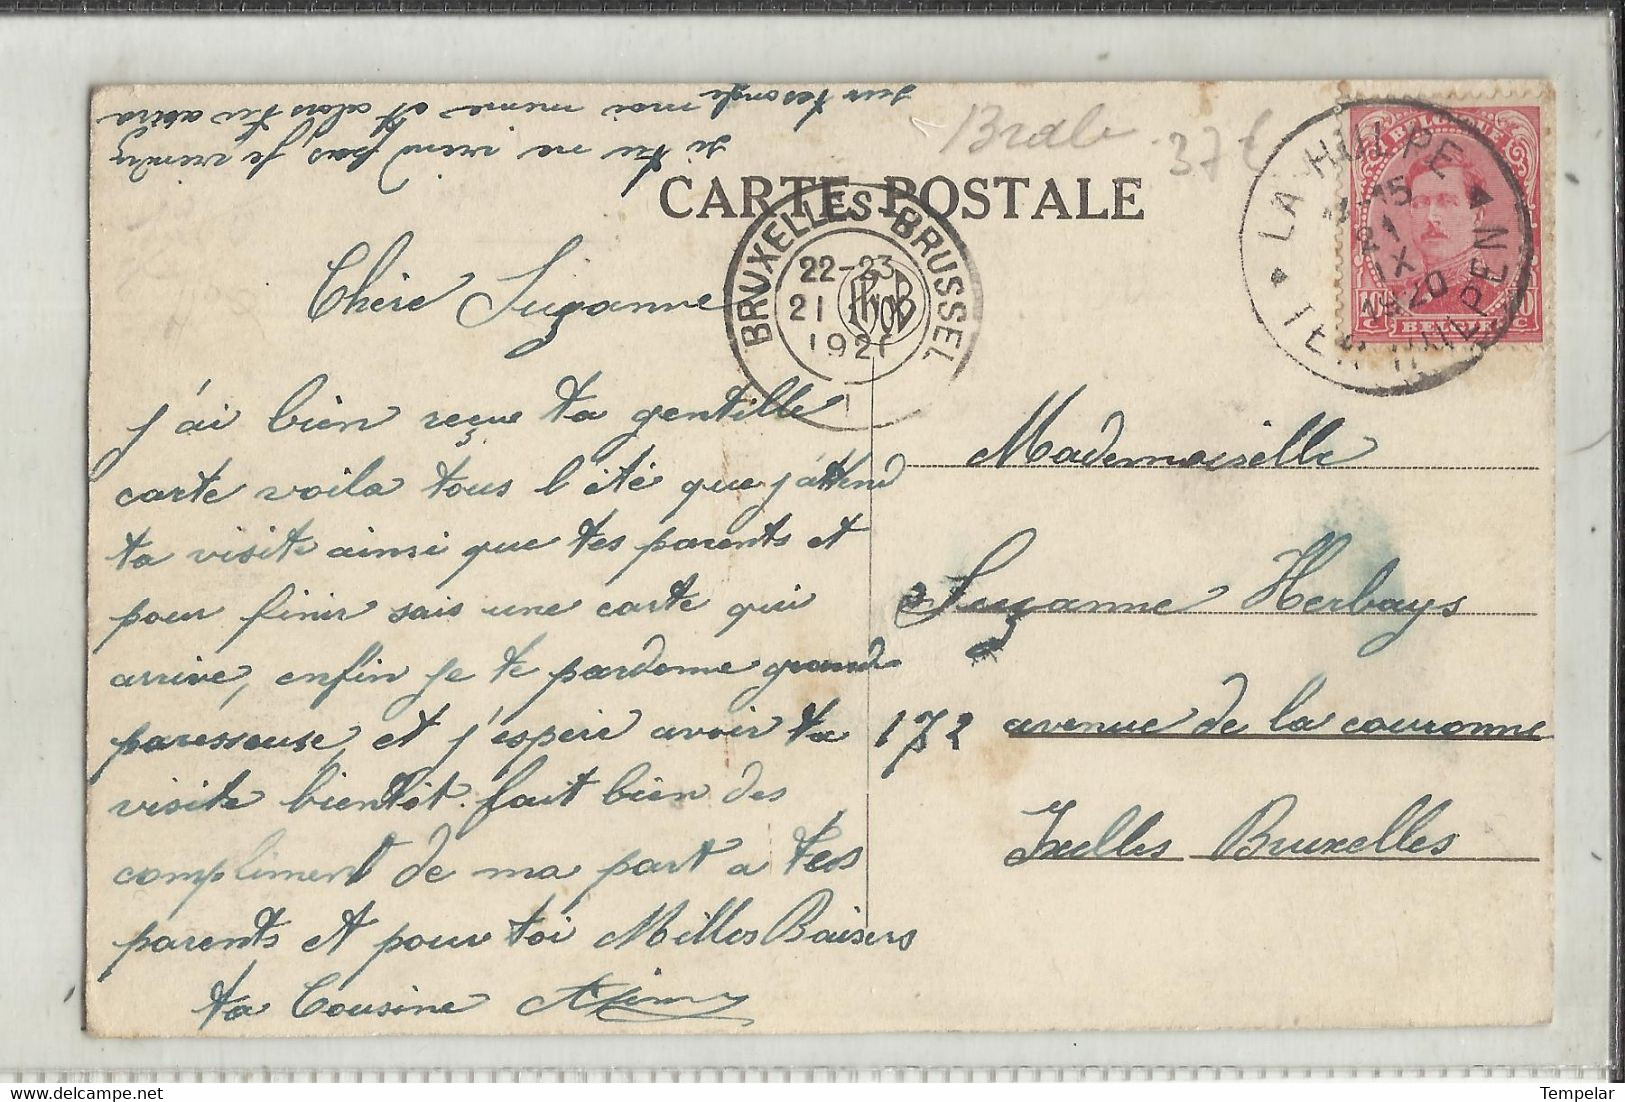 si tu ne viend pas je viendu
sur tesongle moi même et alors tu aura
Brab
37€
CARTE POSTALE
BRUXELLES-BRUSSEL
22-23
21
1921
LA HULPE
TER HULPEN
21
IX
1920
BELGIQUE
BELGIE
Chère Suzanne
j'ai bien reçue ta gentille
carte voila tous l'été que j'attend
ta visite ainsi que tes parents et
pour finir sais une carte qui
arrive, enfin je te pardonne grande
paresseuse, et j'espère avoir ta
visite bientôt. fait bien des
compliment de ma part a tes
parents et pour toi Milles Baisers
ta Cousine
Mademoiselle
Suzanne Herbays
172 avenue de la couronne
Ixelles Bruxelles
Tempelar